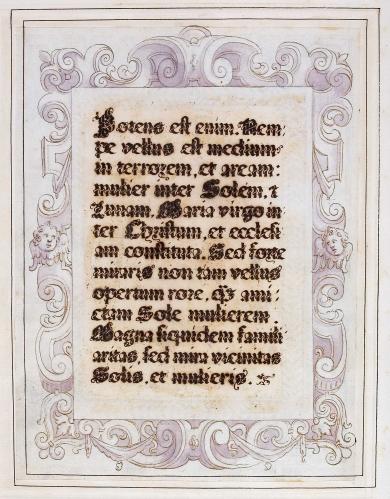 Potens est enim. Nem-
pe vellus est medium
in terrorem, et aream:
mulier inter Solem, ⁊
Lunam. Maria virgo in
ter Christum, et ecclesi
am constituta. Sed forte
miraris non tam vellus
opertum rore,
ctam Sole mulierem.
Magna siquidem famili
aritas, sed mira vicinitas
Solis, et mulieris.